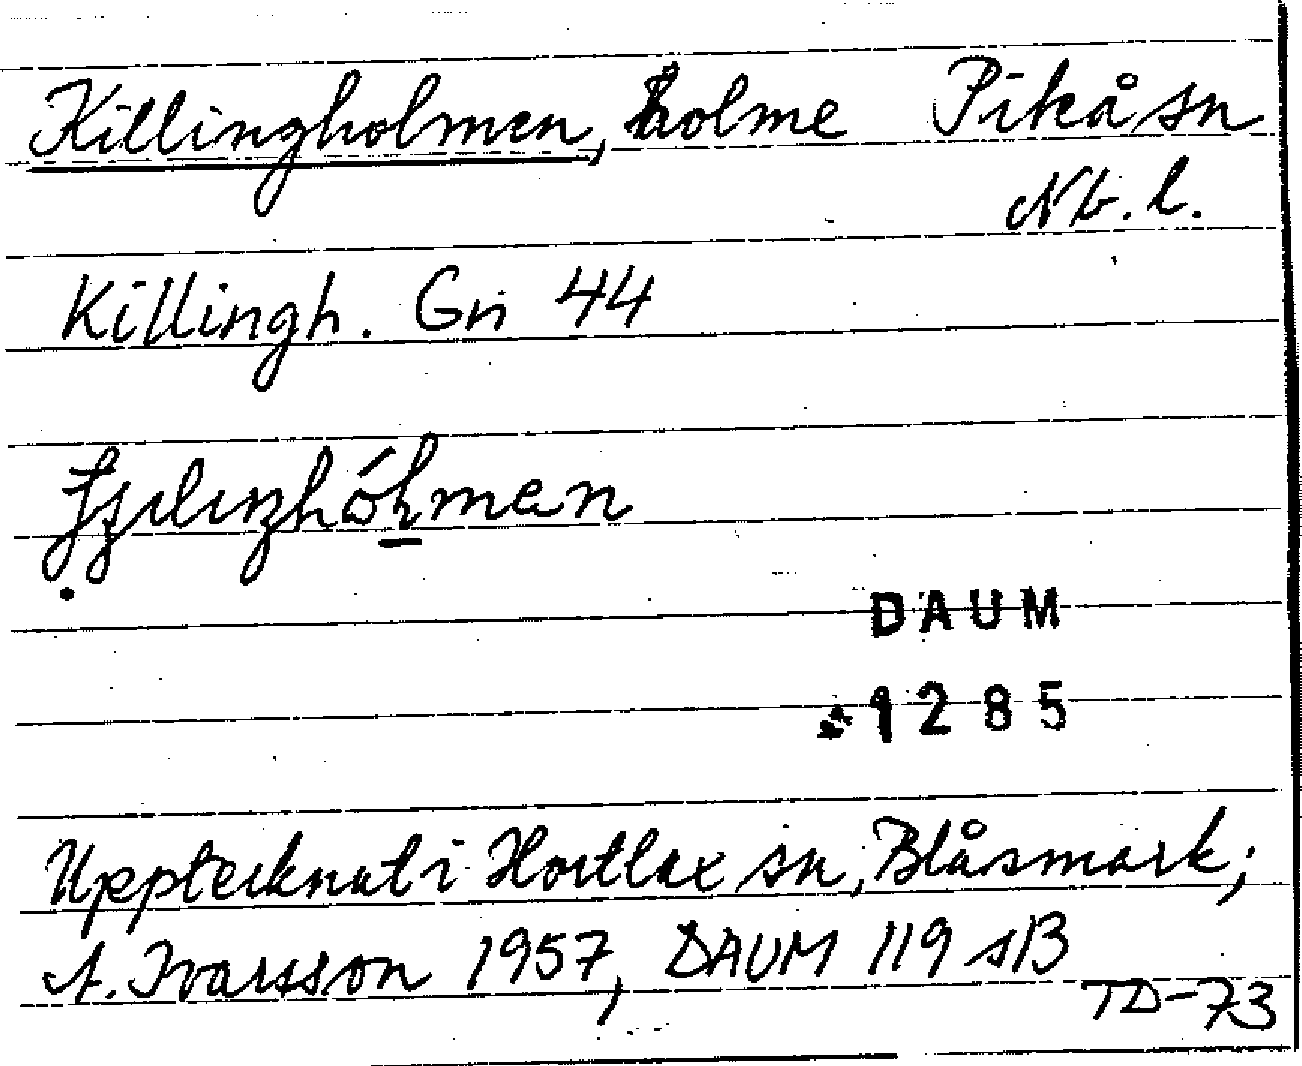 Killingholmen, holme Piteå sn
Nb. l.
Killingh. Gn 44
DAUM
1285
Upptecknat i Hortlax sn, Blåsmark;
A. Ivarsson 1957, DAUM 119 s13
TD-73